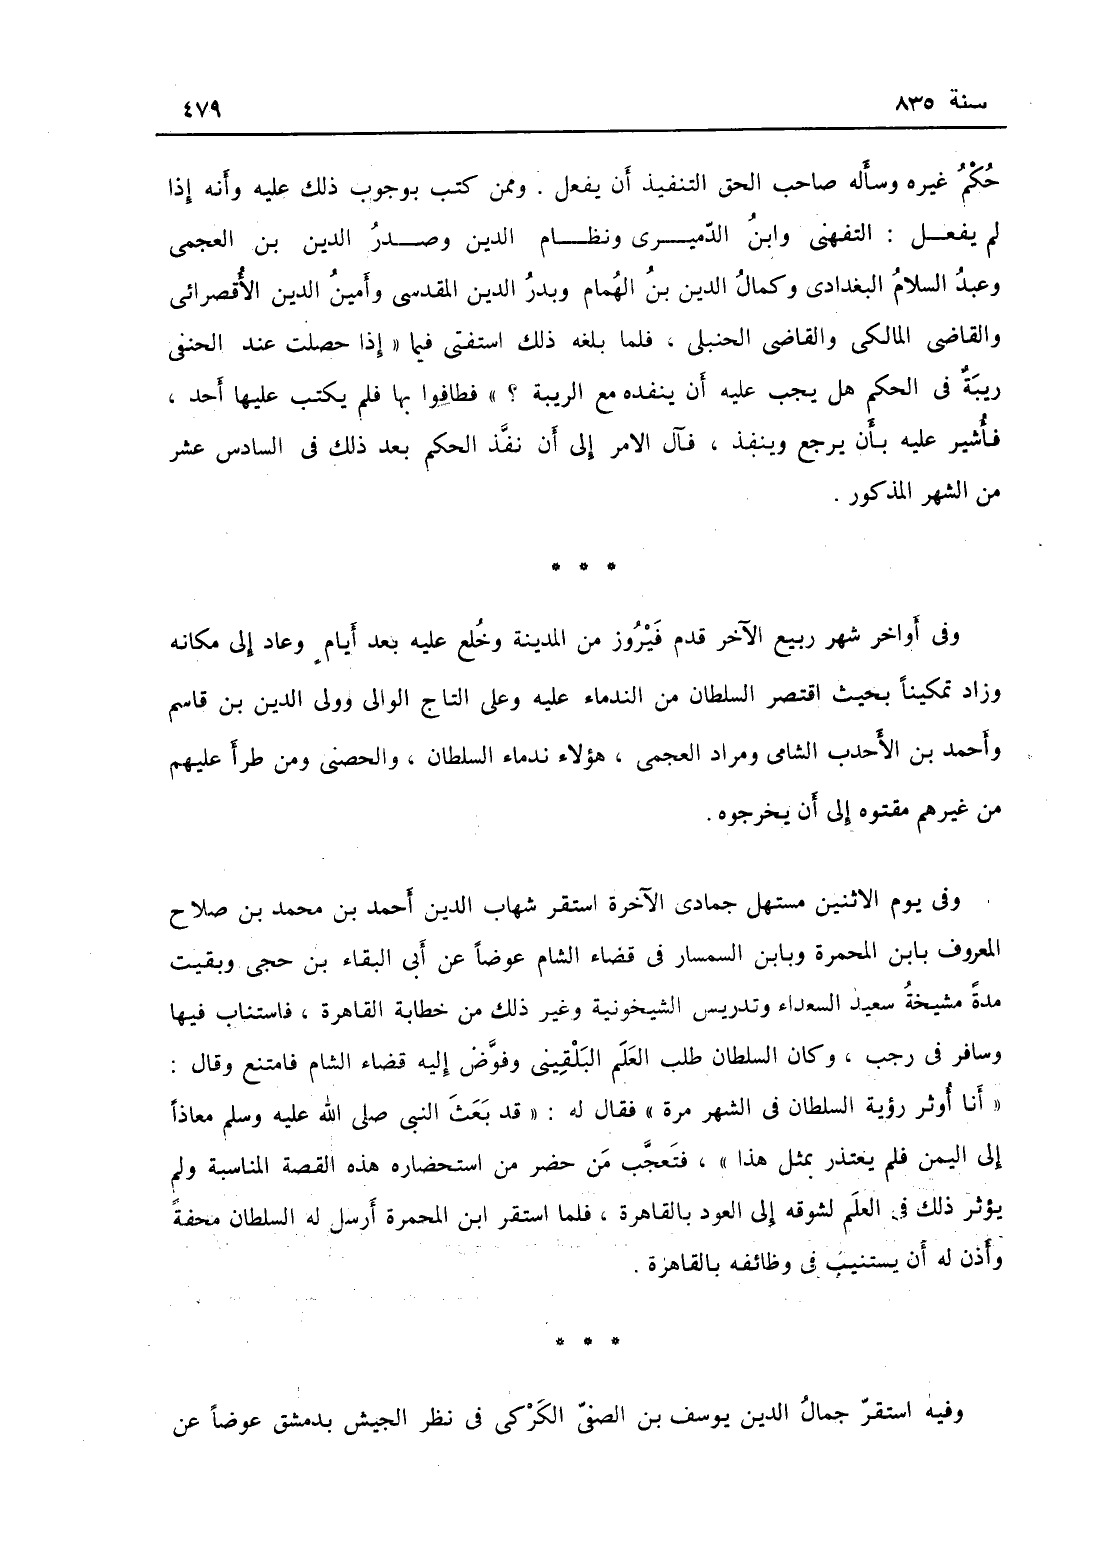 سنة ٨٣٥ ٤٧٩
حُكْمُ غيره وسأَله صاحب الحق التنفيذ أَن يفعل . وممن كتب بوجوب ذلك عليه وأَنه إذا
لم يفعـل : التفهنى وابنُ الدّميـرى ونظـام الدين وصـدرُ الدين بن العجمى
وعبدُ السلامُ البغدادى وكمالُ الدين بنُ الهُمام وبدرُ الدين المقدسى وأَمينُ الدين الأُقصرائى
والقاضى المالكى والقاضى الحنبلى ، فلما بلغه ذلك استفتى فيما « إذا حصلت عند الحنفى
ريبَةٌ فى الحكم هل يجب عليه أَن ينفده مع الريبة ؟ » فطافوا بها فلم يكتب عليها أحد ،
فأُشير عليه بأَن يرجع وينفذ ، فآل الامر إلى أَن نفَّذ الحكم بعد ذلك فى السادس عشر
من الشهر المذكور .
* * *
وفى أَواخر شهر ربيع الآخر قدم فَيْرُوز من المدينة وخُلع عليه بعد أَيام وعاد إلى مكانه
وزاد تمكيناً بحيث اقتصر السلطان من الندماء عليه وعلى التاج الوالى وولى الدين بن قاسم
وأَحمد بن الأَحدب الشامى ومراد العجمى ، هؤلاء ندماء السلطان ، والحصنى ومن طرأَ عليهم
من غيرهم مقتوه إلى أَن يخرجوه .
وفى يوم الاثنين مستهل جمادى الآخرة استقر شهاب الدين أَحمد بن محمد بن صلاح
المعروف بابن المحمرة وبابن السمسار فى قضاء الشام عوضاً عن أَبى البقاء بن حجى وبقيت
مدةً مشيخةُ سعيد السعداء وتدريس الشيخونية وغير ذلك من خطابة القاهرة ، فاستناب فيها
وسافر فى رجب ، وكان السلطان طلب العَلَم البَلْقِينى وفوَّض إليه قضاء الشام فامتنع وقال :
« أَنا أُوثر رؤية السلطان فى الشهر مرة » فقال له : « قد بَعَثَ النبى صلى الله عليه وسلم معاذاً
إلى اليمن فلم يعتذر بمثل هذا » ، فتَعجَّب مَن حضر من استحضاره هذه القصة المناسبة ولم
يؤثر ذلك فى العلَم لشوقه إلى العود بالقاهرة ، فلما استقر ابن المحمرة أَرسل له السلطان محفةً
وأَذن له أَن يستنيبَ فى وظائفه بالقاهرة .
* * *
وفيه استقرّ جمالُ الدين يوسف بن الصفىّ الكَرْكى فى نظر الجيش بدمشق عوضاً عن